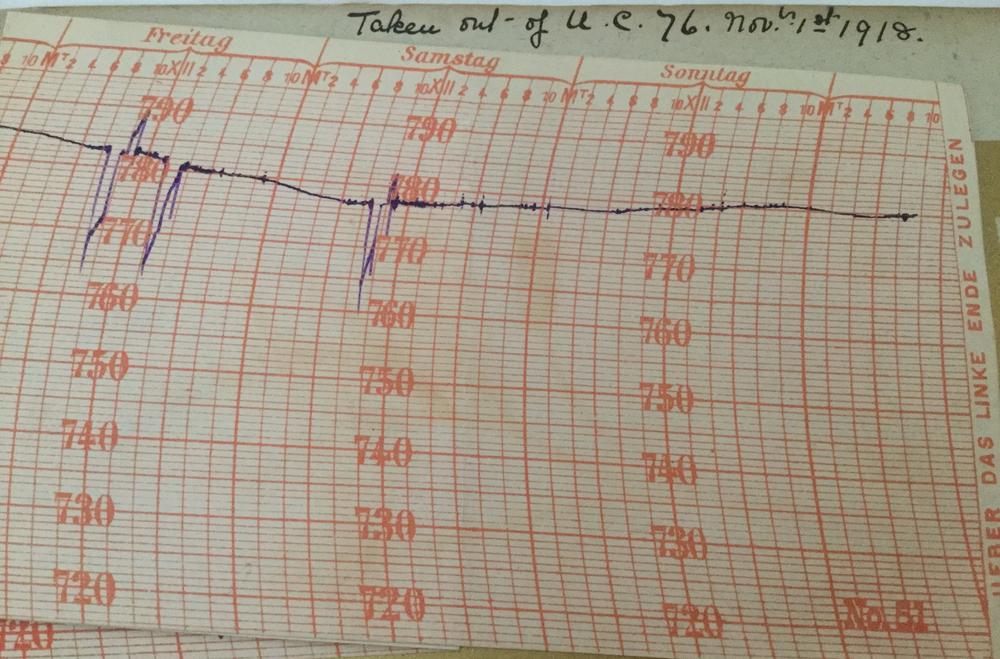 Taken out of U.C. 76. Nov. 1st 1918.
Freitag Samstag Sonntag
8 10 Mᵀ 2 4 6 8 10 XII 2 4 6 8 10 Mᵀ 2 4 6 8 10 XII 2 4 6 8 10 Mᵀ 2 4 6 8 10 XII 2 4 6 8 10 Mᵀ 2 4 6 8 10
790 790 790
780 780 780
770 770 770
760 760 760
750 750 750
740 740 740
730 730 730
720 720 720
No. 51
720
UEBER DAS LINKE ENDE ZU LEGEN